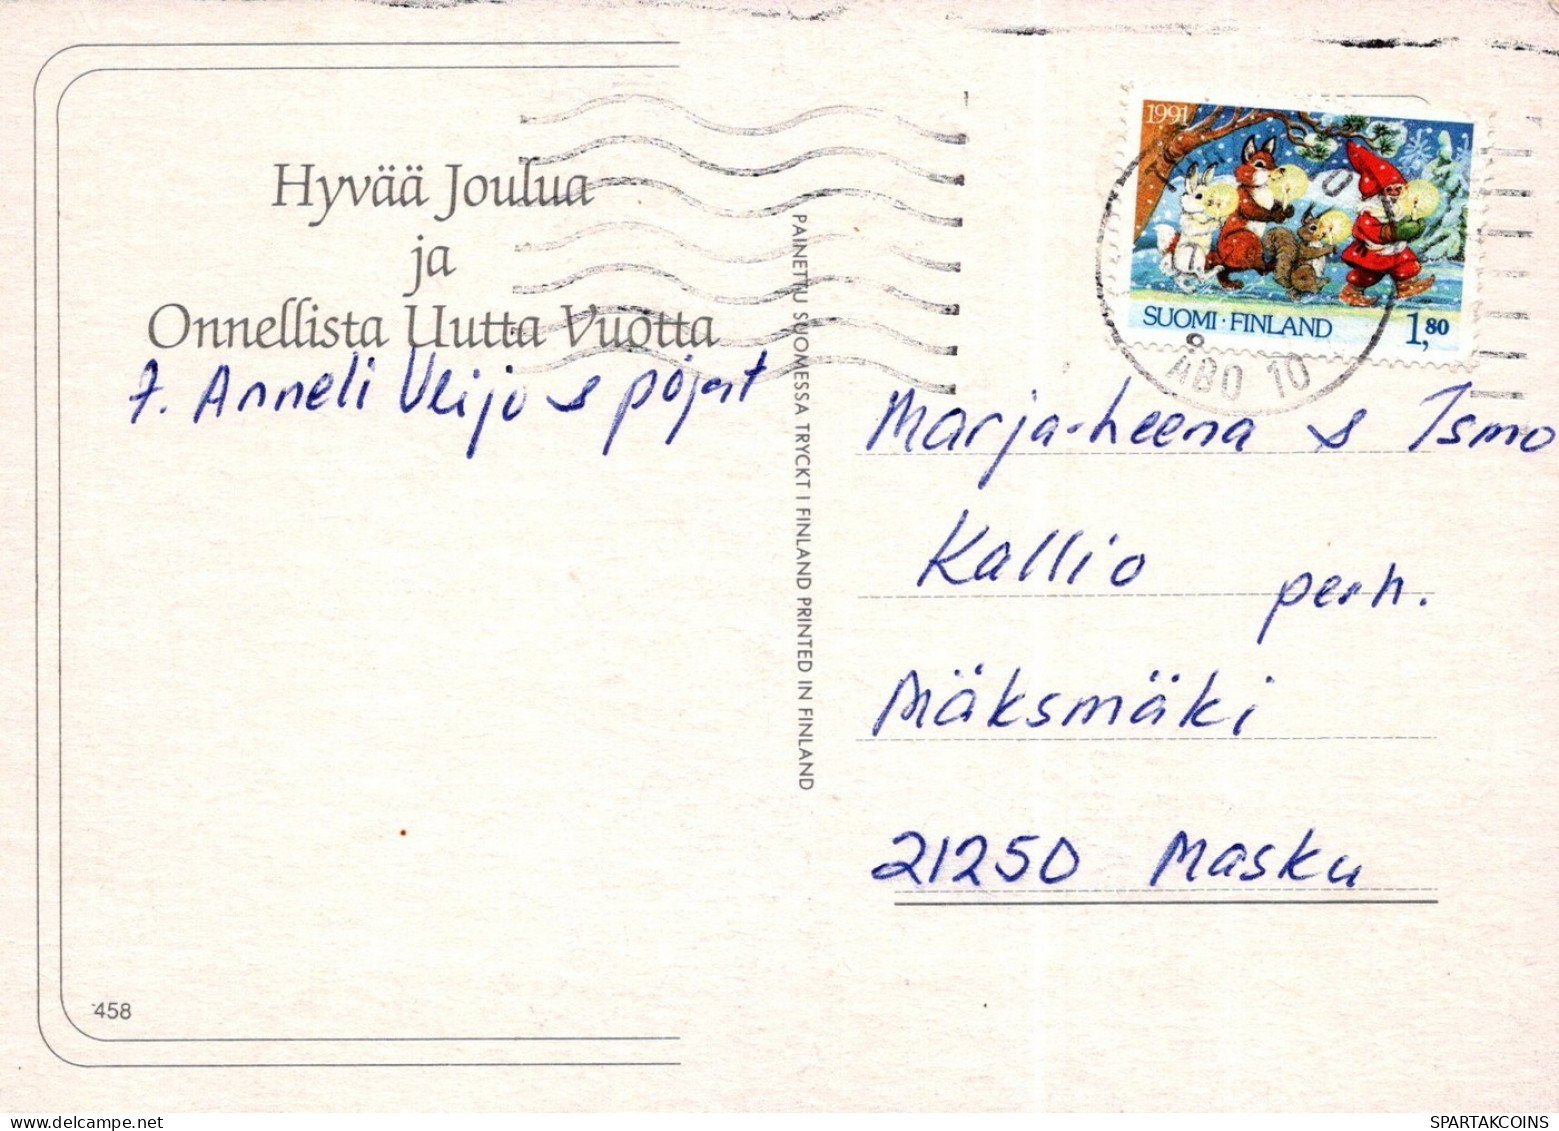 Hyvää Joulua
ja
Onnellista Uutta Vuotta
7. Anneli Veijo & pojat
458
PAINETTU SUOMESSA TRYCKT I FINLAND PRINTED IN FINLAND
1991
SUOMI·FINLAND 1,80
ÅBO 10
Marja-heena & Ismo
Kallio perh.
Mäksmäki
21250 Masku
delcampe.net
SPARTAKCOINS